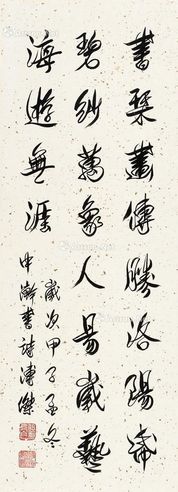 書琹畫傳勝洛陽帋
碧紗萬象人易歲藝
海遊無涯
歲次甲子孟冬
中瀚書詩溥傑